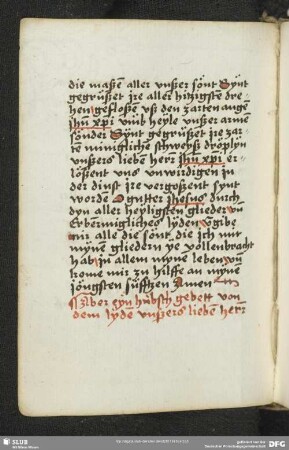 die maßen aller unßer sönt Synt
gegrüßet jre aller hitzigste dre
hen gefloße uß den zarten auge
jhu xpi vmb heyle unßer arme
sonder Synt gegrüßet jre zar
te minigliche schweyß dröplyn
unßers liebē herrē jhu xpi er
lößent uns unwirdigen in
der dinst jre vergoßent synt
worde O gutter jhesus durch
dyn aller heyligsten glieder uñ
Erbermigliches lyden vgibe
mir alle die sönt die ich mit
mynē gliedern ye vollenbracht
hab in allem myne leben uñ
kome mir zu hilffe an myne
jöngsten süfftzen Amen
Aber eyn hübsch gebett von
dem lyde unßers lieben herr
SLUB
DFG